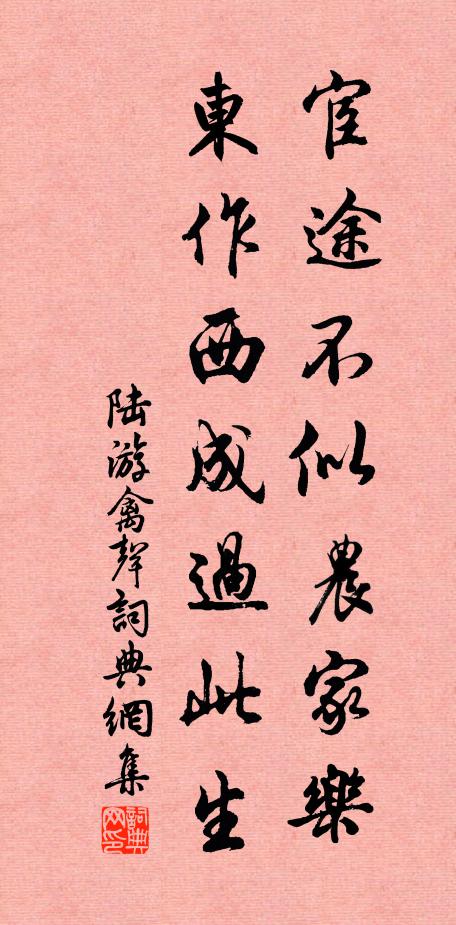 宦途不似農家樂
東作西成過此生
陸游禽聲詞典網集
詞典网印